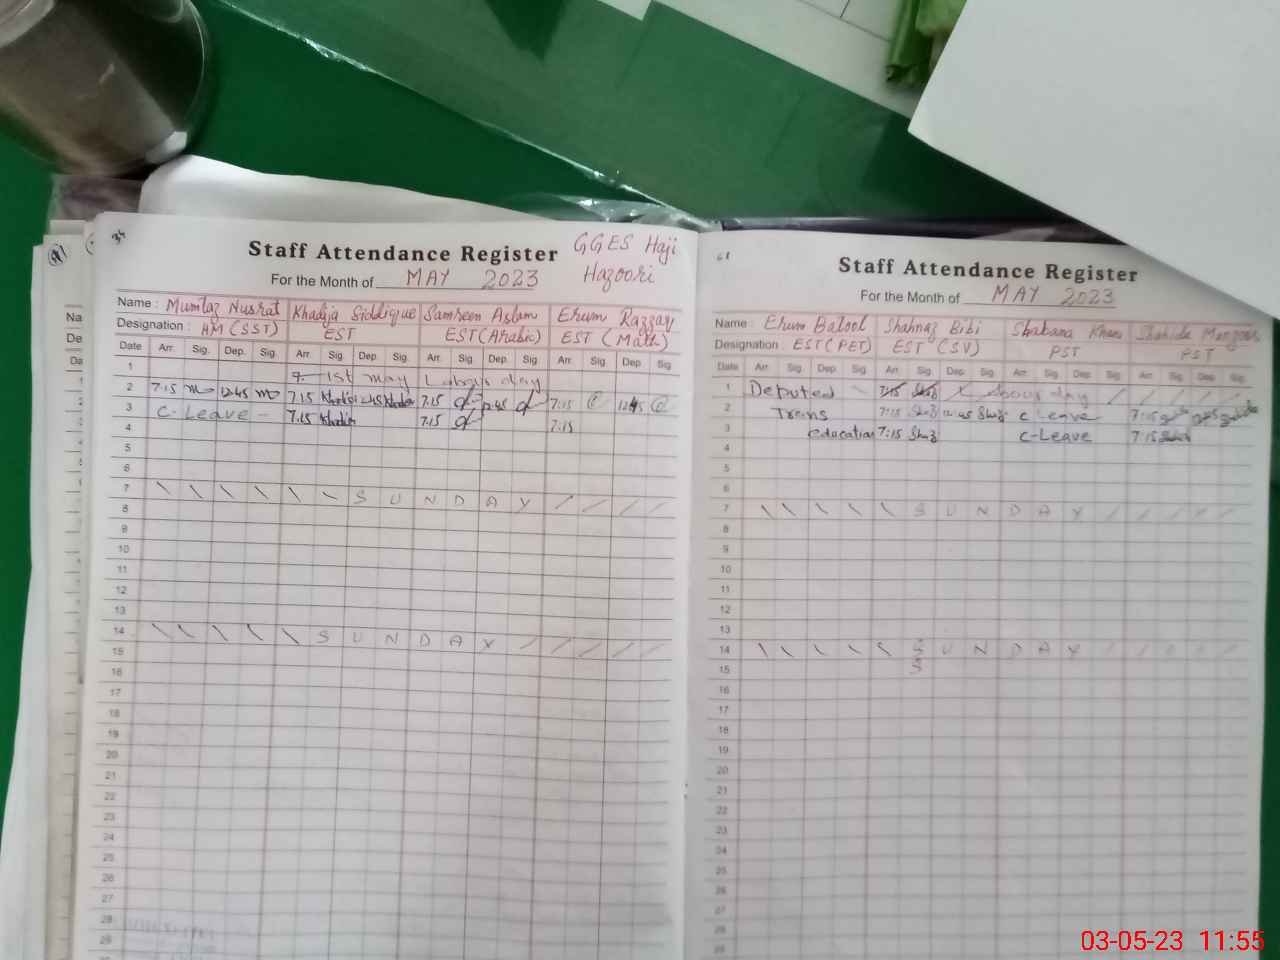 35
Staff Attendance Register GGES Haji
For the Month of MAY 2023 Hazoori
Name : Mumtaz Nusrat Khadija Siddique Samreen Aslam Erum Razzaq
Designation : HM (SST) EST EST (Arabic) EST (Math)
Date Arr. Sig. Dep. Sig. Arr. Sig. Dep. Sig. Arr. Sig. Dep. Sig. Arr. Sig. Dep. Sig.
1 1st may Labour day
2 7:15 12:45 7:15 Khadija 12:45 Khadija 7:15 12:45 7:15 12:45
3 C-Leave - 7:15 Khadija 7:15 7:15
4
5
6
7 S U N D A Y
8
9
10
11
12
13
14 S U N D A Y
15
16
17
18
19
20
21
22
23
24
25
26
27
28
29
Staff Attendance Register
For the Month of MAY 2023
Name : Erum Batool Shahnaz Bibi Shabana Khan Shahida Manzoor
Designation : EST (PET) EST (SV) PST PST
Date Arr. Sig. Dep. Sig. Arr. Sig. Dep. Sig. Arr. Sig. Dep. Sig. Arr. Sig. Dep. Sig.
1 Deputed 7:15 Shaz Labour day
2 Trans 7:15 Shaz 12:45 Shaz C Leave 7:15 12:45
3 education 7:15 Shaz C-Leave 7:15
4
5
6
7 S U N D A Y
8
9
10
11
12
13
14 S U N D A Y
15 S
16
17
18
19
20
21
22
23
24
25
26
27
28
29
03-05-23 11:55